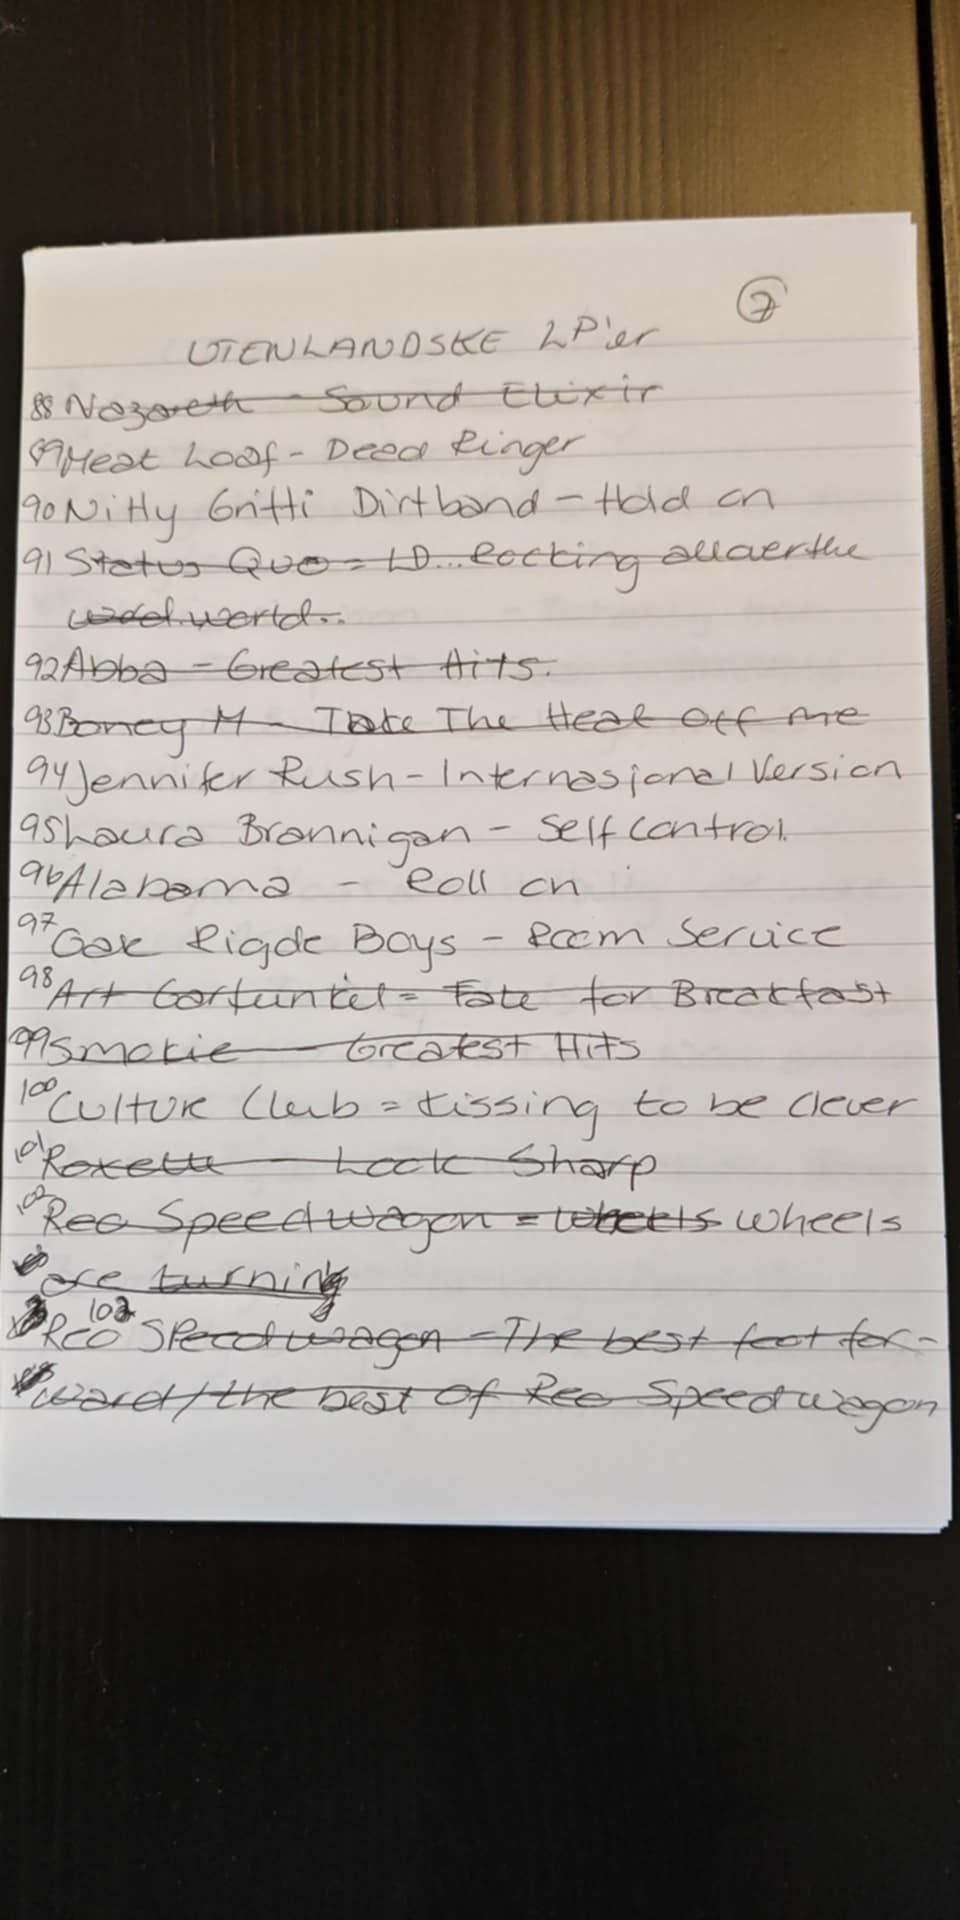 7
UTENLANDSKE LP'er
88 Nazareth - Sound Elixir
89 Meat Loaf - Dead Ringer
90 Nitty Gritti Dirtband - Hold on
91 Status Quo - LD... Rocking all over the
world..
92 Abba - Greatest Hits.
93 Boney M - Take The Heat Off me
94 Jennifer Rush - Internasjonal Version
95 Laura Brannigan - Self Control.
96 Alabama - Roll on
97 Oak Rigde Boys - Room Service
98 Art Garfunkel - Fate for Breakfast
99 Smokie - Greatest Hits
100 Culture Club - Kissing to be clever
101 Roxette - Look Sharp
102 Reo Speedwagon - Wheels Wheels
are turning
103 Reo Speedwagon - The best foot for-
ward / the best of Reo Speedwagon